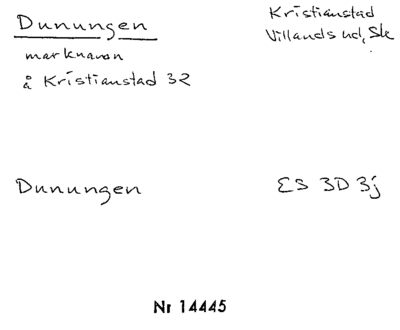 Dunungen
Kristianstad
Villands hd, Sk
marknamn
å Kristianstad 32
Dunungen
ES 3D 3j
Nr 14445